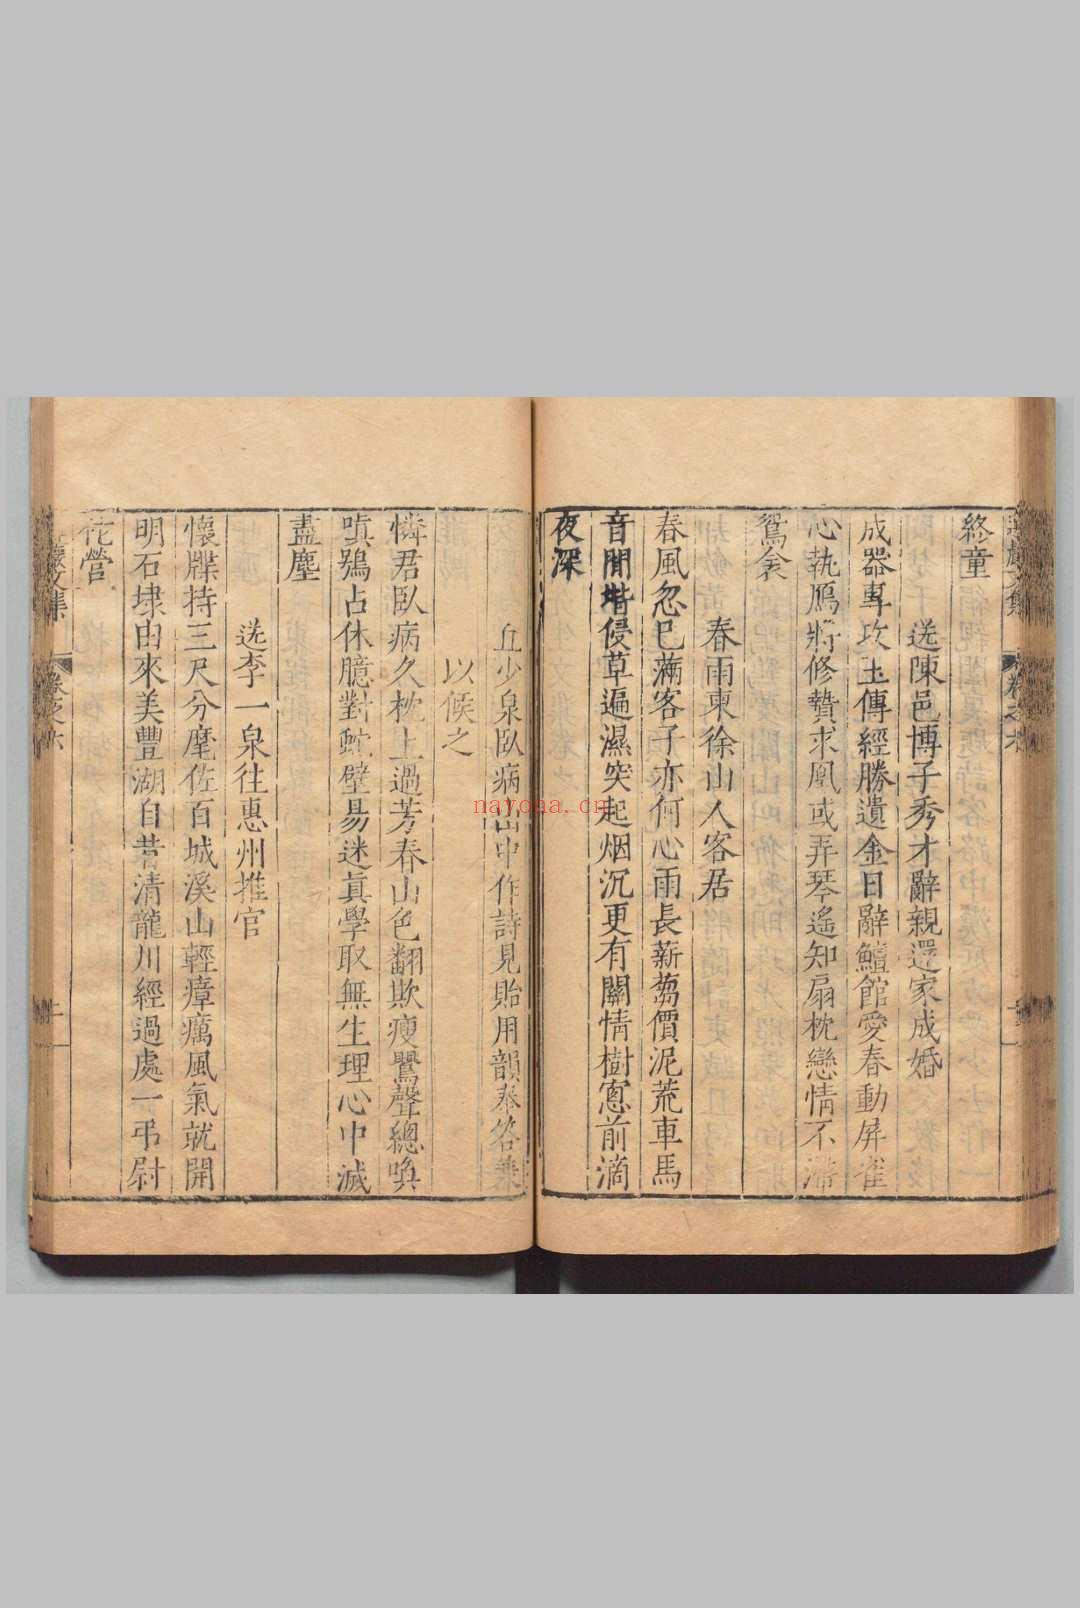 終童
送陳邑博子秀才辭親還家成婚
成器專攻玉傳經勝遺金日辭鱣館愛春動屏雀
心執鴈將修贄求凰或弄琴遙知扇枕戀情不滯
鴛衾
春雨柬徐山人客居
春風忽已滿客子亦何心雨長薪蒭價泥荒車馬
音閒堦侵草遍濕突起烟沉更有關情樹窻前滴
夜深
丘少泉臥病山中作詩見貽用韻奉答兼
以候之
憐君臥病久枕上過芳春山色翻欺瘦鸎聲總喚
嗔鵩占休臆對蛇壁易迷真學取無生理心中滅
盡塵
送李一泉往惠州推官
懷牒持三尺分麾佐百城溪山輕瘴癘風氣就開
明石埭由來美豐湖自昔清龍川經過處一弔尉
佗營
文集
卷之六
nayona.cn